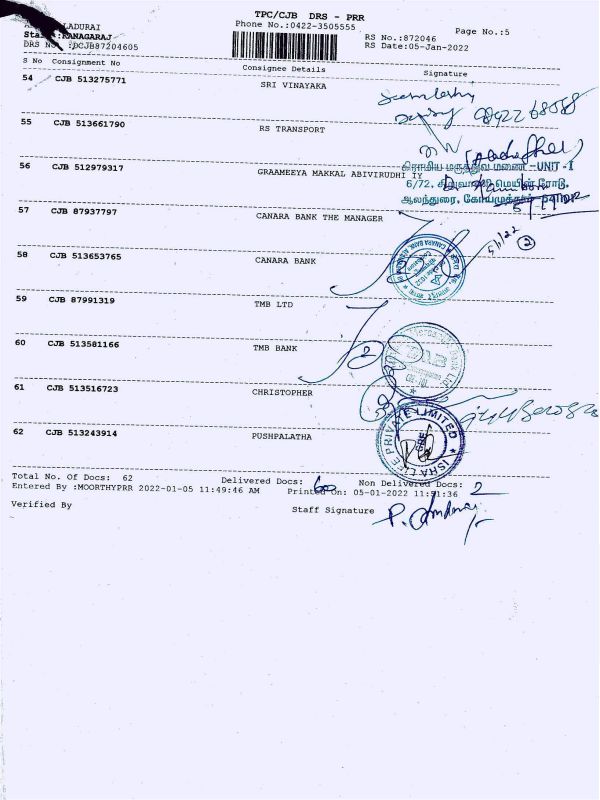 TPC/CJB DRS - PRR
LADURAI
Phone No.:0422-3505555
Page No.:5
KANAGARAJ
RS No.:872046
DRS No :DCJB87204605
RS Date:05-Jan-2022
S No Consignment No Consignee Details Signature
54 CJB 513275771 SRI VINAYAKA
98922 68088
55 CJB 513661790 RS TRANSPORT
56 CJB 512979317 GRAAMEEYA MAKKAL ABIVIRUDHI IY
கிராமிய மருத்துவ மனை -UNIT-I
6/72, சிறுவாணி மெயின் ரோடு,
ஆலந்துறை, கோயமுத்தூர்
57 CJB 87937797 CANARA BANK THE MANAGER
5/1/22
2
58 CJB 513653765 CANARA BANK
59 CJB 87991319 TMB LTD
60 CJB 513581166 TMB BANK
2
61 CJB 513516723 CHRISTOPHER
62 CJB 513243914 PUSHPALATHA
ISHA LIFE PRIVATE LIMITED
Total No. Of Docs: 62 Delivered Docs: 60 Non Delivered Docs: 2
Entered By :MOORTHYPRR 2022-01-05 11:49:46 AM Printed On: 05-01-2022 11:51:36
Verified By Staff Signature